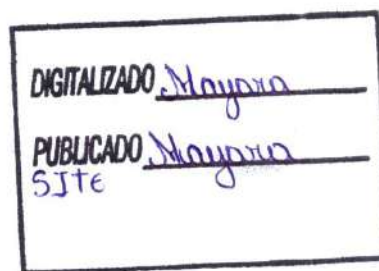 DIGITALIZADO Mayara
PUBLICADO Mayara
SITE